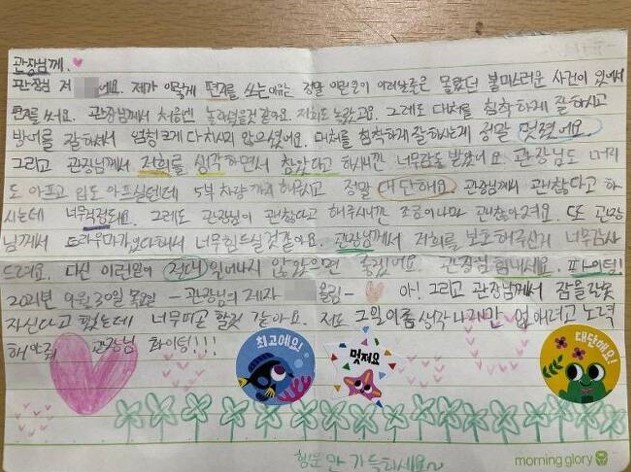 관장님께.
관장님 저 에요. 제가 이렇게 편지를 쓰는 이유는 정말 이런일이 일어날줄은 몰랐던 불미스러운 사건이 있어서
편지를 써요. 관장님께서 처음엔 놀라셨을것 같아요. 저희도 놀랐고요. 그래도 대처를 침착하게 잘하시고
방어를 잘하셔서 엄청크게 다치시지 않으셨어요. 대처를 침착하게 잘하시는게 정말 멋졌어요.
그리고 관장님께서 저희를 생각하면서 참았다고 하시니깐 너무감동 받았어요. 관장님도 머리
도 아프고 입도 아프실텐데 5부 차량 까지 해주시고 정말 대단해요. 관장님께서 괜찮다고 하
시는데 너무걱정돼요. 그래도 관장님이 괜찮다고 해주시니깐 조금이나마 괜찮아져요. 또 관장
님께서 트라우마가 있다해서 너무힘드실것같아요. 관장님께서 저희를 보호해주신거 너무감사
드려요. 다신 이런일이 절대 일어나지 않았으면 좋겠어요. 관장님 힘내세요. 파이팅!
2021년 9월 30일 목요일 - 관장님의 제자 올림- 아! 그리고 관장님께서 잠을 잘못
자신다고 했는데 너무피곤 할것 같아요. 저도 그일이 생각나지만 없애려고 노력
해 관장님 화이팅!!!
최고예요!
멋져요
대단해요!
행운만 가득하세요~
morning glory